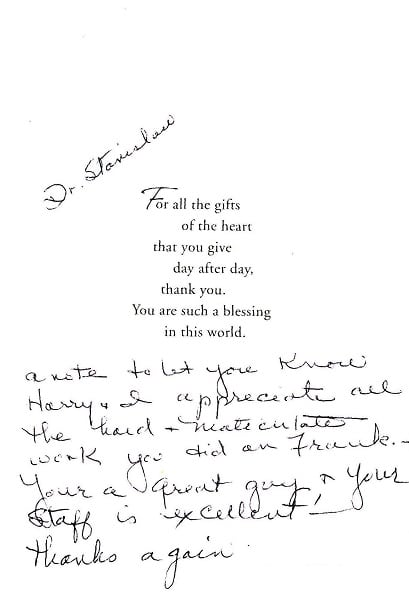 Dr. Stanislaw
For all the gifts
of the heart
that you give
day after day,
thank you.
You are such a blessing
in this world.
a note to let you know
Harry & I appreciate all
the hard + maticulate
work you did on Frank. -
Your a great guy & your
Staff is excellent!
thanks again